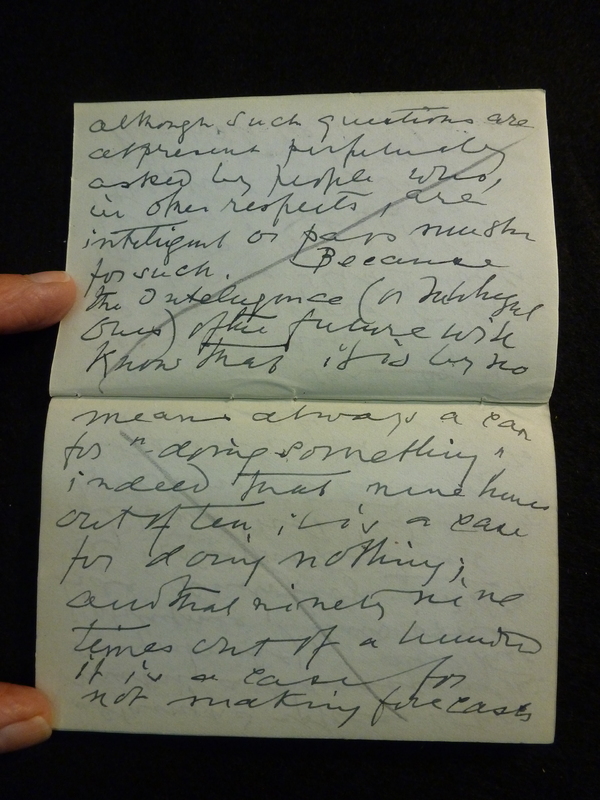 although, such questions are
at present perpetually
asked by people who,
in other respects, are
intelligent or pass muster
for such. Because
the Intelligence (or Intelligent
Ones) of the future will
know that it is by no
means always a case
for "doing something"
indeed that nine times
out of ten it is a case
for doing nothing;
and that ninety nine
times out of a hundred
it is a case for
not making forecasts